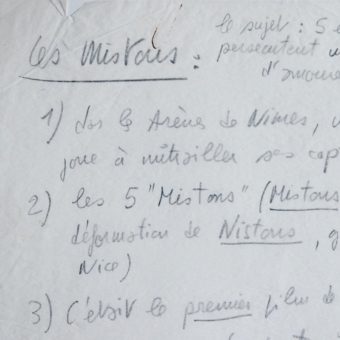 Les Mistons :
le sujet : 5
persécutent
d'amour
1) ds les Arènes de Nîmes,
joue à mitrailler ses cap
2) les 5 "Mistons" (Mistons
déformation de Nistons, g
Nice)
3) C'était le premier film de